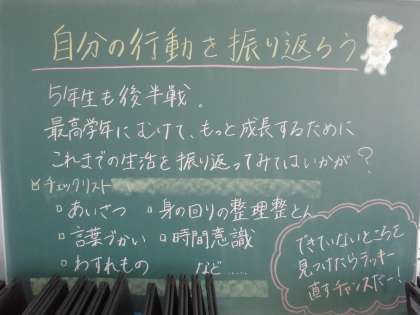 自分の行動を振り返ろう
5年生も後半戦。
最高学年にむけて、もっと成長するために
これまでの生活を振り返ってみてはいかが?
☑チェックリスト
□あいさつ □身の回りの整理整とん
□言葉づかい □時間意識
□わすれもの など……
できていないところを
見つけたらラッキー
直すチャンスだー!